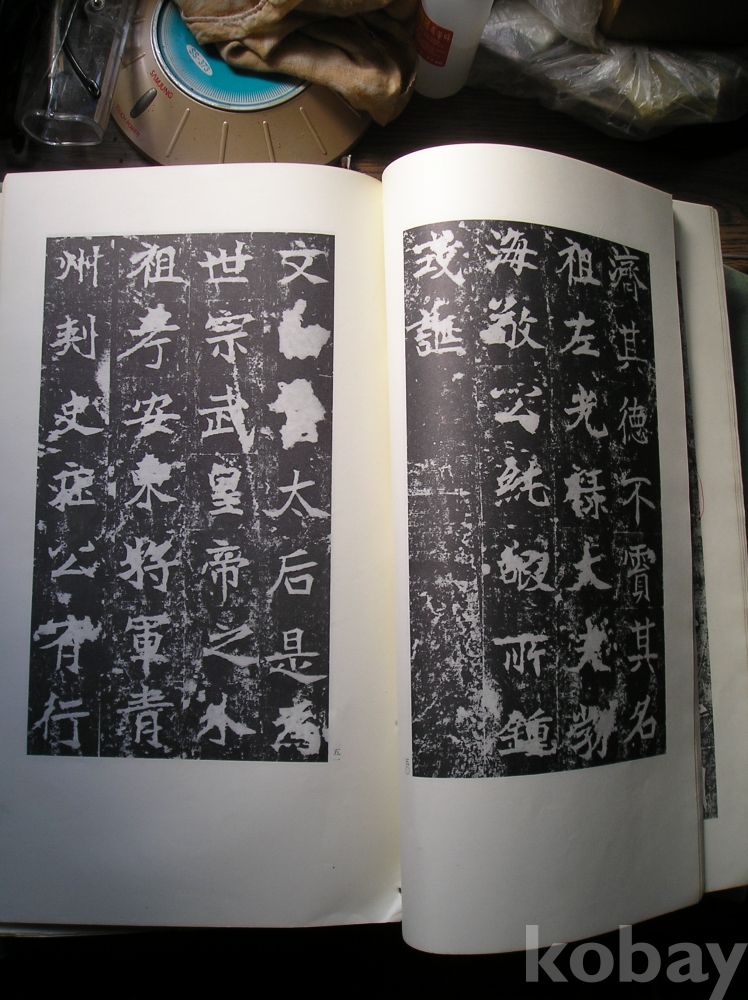 濟其德不霣其名
祖左光祿大夫勃
海敬公純嘏所鍾
式誕
五〇
文太后是為
世宗武皇帝之外
祖考安東將軍青
州刺史莊公有行
五一
SAMSUNG
kobay